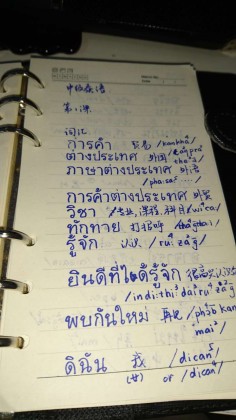 中级泰语
第一课
词汇
การค้า 贸易 /kankha/
ต่างประเทศ 外国
ภาษาต่างประเทศ 外语
/pha:sa:
การค้าต่างประเทศ 外贸
วิชา 专业, 课程, 科目 /wi ca/
ทักทาย 打招呼
รู้จัก 认识 /ru zag/
ยินดีที่ได้รู้จัก 很高兴认识
พบกันใหม่ 再见 /phob kan
mai/
ดิฉัน 我 /dican/
(女) or /dican/